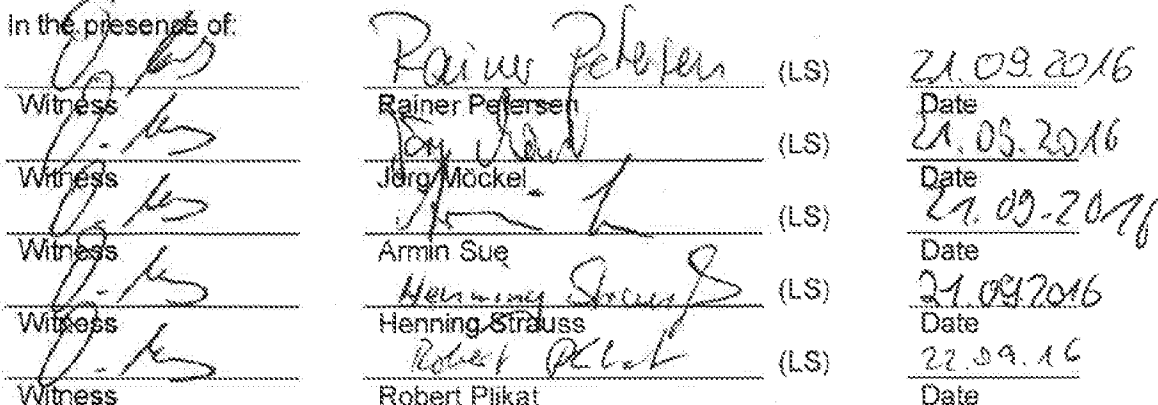 In the presence of:
Rainer Petersen (LS) 21.09.2016
Witness Rainer Petersen Date
(LS) 21.09.2016
Witness Jörg Möckel Date
(LS) 21.09.2016
Witness Armin Sue Date
Henning Strauß (LS) 21.09.2016
Witness Henning Strauss Date
Robert Plikat (LS) 22.09.16
Witness Robert Plikat Date